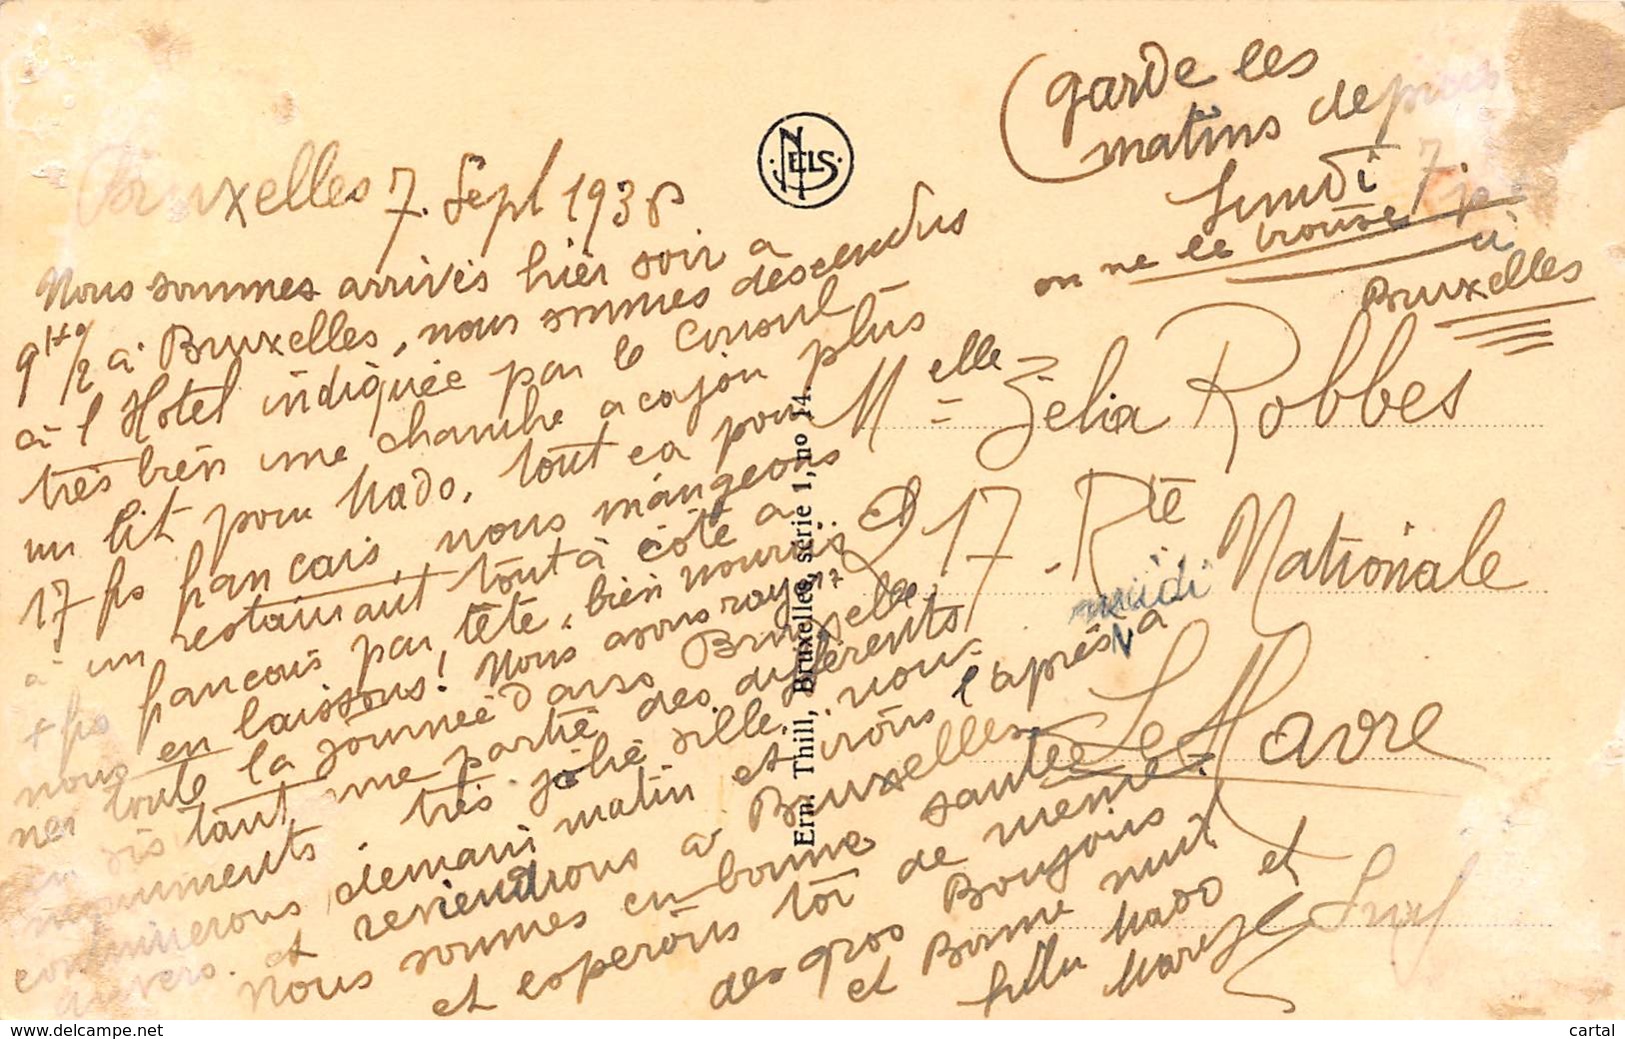 (garde les
matins depuis
Lundi 7
on ne le trouve
à
Bruxelles
NELS
Bruxelles 7. Sept 1938
Nous sommes arrivés hier soir a
9 1/2 à Bruxelles, nous sommes descendus
à l'Hotel indiquée par le Consul
très bien une chambre acajou plus
un lit pour Mado. tout ca pour
17 frs francais, nous mangeons
à un restaurant tout à côté a
+ frs francais par tête, bien nourris
nous en laissons! Nous avons
toute la journée dans Bruxelles
tant une partie des différents
monuments. très jolie ville. nous
continuerons demain matin et irons l'après midi a
Anvers. et reviendrons à Bruxelles
Nous sommes en bonne santée
et esperons toi de meme.
des gros Boujours
et Bonne nuit
Mado et
Marcel
Melle Zelia Robbes
217 Rte Nationale
Le Havre
Ern. Thill, Bruxelles, série 1, no 14.
www.delcampe.net
cartal